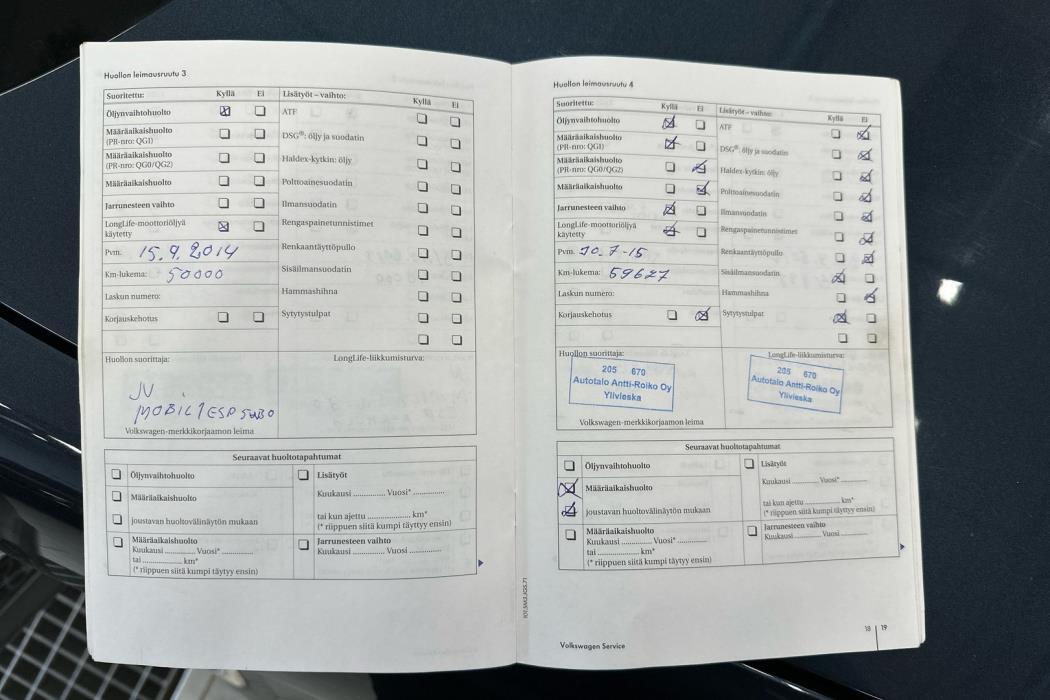 Huollon leimausruutu 3
Suoritettu: Kyllä Ei Lisätyöt – vaihto: Kyllä Ei
Öljynvaihtohuolto
Määräaikaishuolto
(PR-nro: QG1)
Määräaikaishuolto
(PR-nro: QG0/QG2)
Määräaikaishuolto
Jarrunesteen vaihto
LongLife-moottoriöljyä
käytetty
Pvm: 15.9.2014
Km-lukema: 50000
Laskun numero:
Korjauskehotus
ATF
DSG®: öljy ja suodatin
Haldex-kytkin: öljy
Polttoainesuodatin
Ilmansuodatin
Rengaspainetunnistimet
Renkaantäyttöpullo
Sisäilmansuodatin
Hammashihna
Sytytystulpat
Huollon suorittaja:
LongLife-liikkumisturva:
JV
MOBIL 1 ESP 5W30
Volkswagen-merkkikorjaamon leima
Seuraavat huoltotapahtumat
Öljynvaihtohuolto
Määräaikaishuolto
joustavan huoltovälinäytön mukaan
Määräaikaishuolto
Kuukausi ............. Vuosi* .............
tai ................. km*
(* riippuen siitä kumpi täytyy ensin)
Lisätyöt
Kuukausi ............. Vuosi* .............
tai kun ajettu ................. km*
(* riippuen siitä kumpi täytyy ensin)
Jarrunesteen vaihto
Kuukausi ............. Vuosi .............
101.5M3.JGS.71
Huollon leimausruutu 4
Suoritettu: Kyllä Ei Lisätyöt – vaihto: Kyllä Ei
Öljynvaihtohuolto
Määräaikaishuolto
(PR-nro: QG1)
Määräaikaishuolto
(PR-nro: QG0/QG2)
Määräaikaishuolto
Jarrunesteen vaihto
LongLife-moottoriöljyä
käytetty
Pvm: 10.7-15
Km-lukema: 59627
Laskun numero:
Korjauskehotus
ATF
DSG®: öljy ja suodatin
Haldex-kytkin: öljy
Polttoainesuodatin
Ilmansuodatin
Rengaspainetunnistimet
Renkaantäyttöpullo
Sisäilmansuodatin
Hammashihna
Sytytystulpat
Huollon suorittaja:
205 670
Autotalo Antti-Roiko Oy
Ylivieska
LongLife-liikkumisturva:
205 670
Autotalo Antti-Roiko Oy
Ylivieska
Volkswagen-merkkikorjaamon leima
Seuraavat huoltotapahtumat
Öljynvaihtohuolto
Määräaikaishuolto
joustavan huoltovälinäytön mukaan
Määräaikaishuolto
Kuukausi ............. Vuosi* .............
tai ................. km*
(* riippuen siitä kumpi täytyy ensin)
Lisätyöt
Kuukausi ............. Vuosi* .............
tai kun ajettu ................. km*
(* riippuen siitä kumpi täytyy ensin)
Jarrunesteen vaihto
Kuukausi ............. Vuosi .............
Volkswagen Service
18 | 19